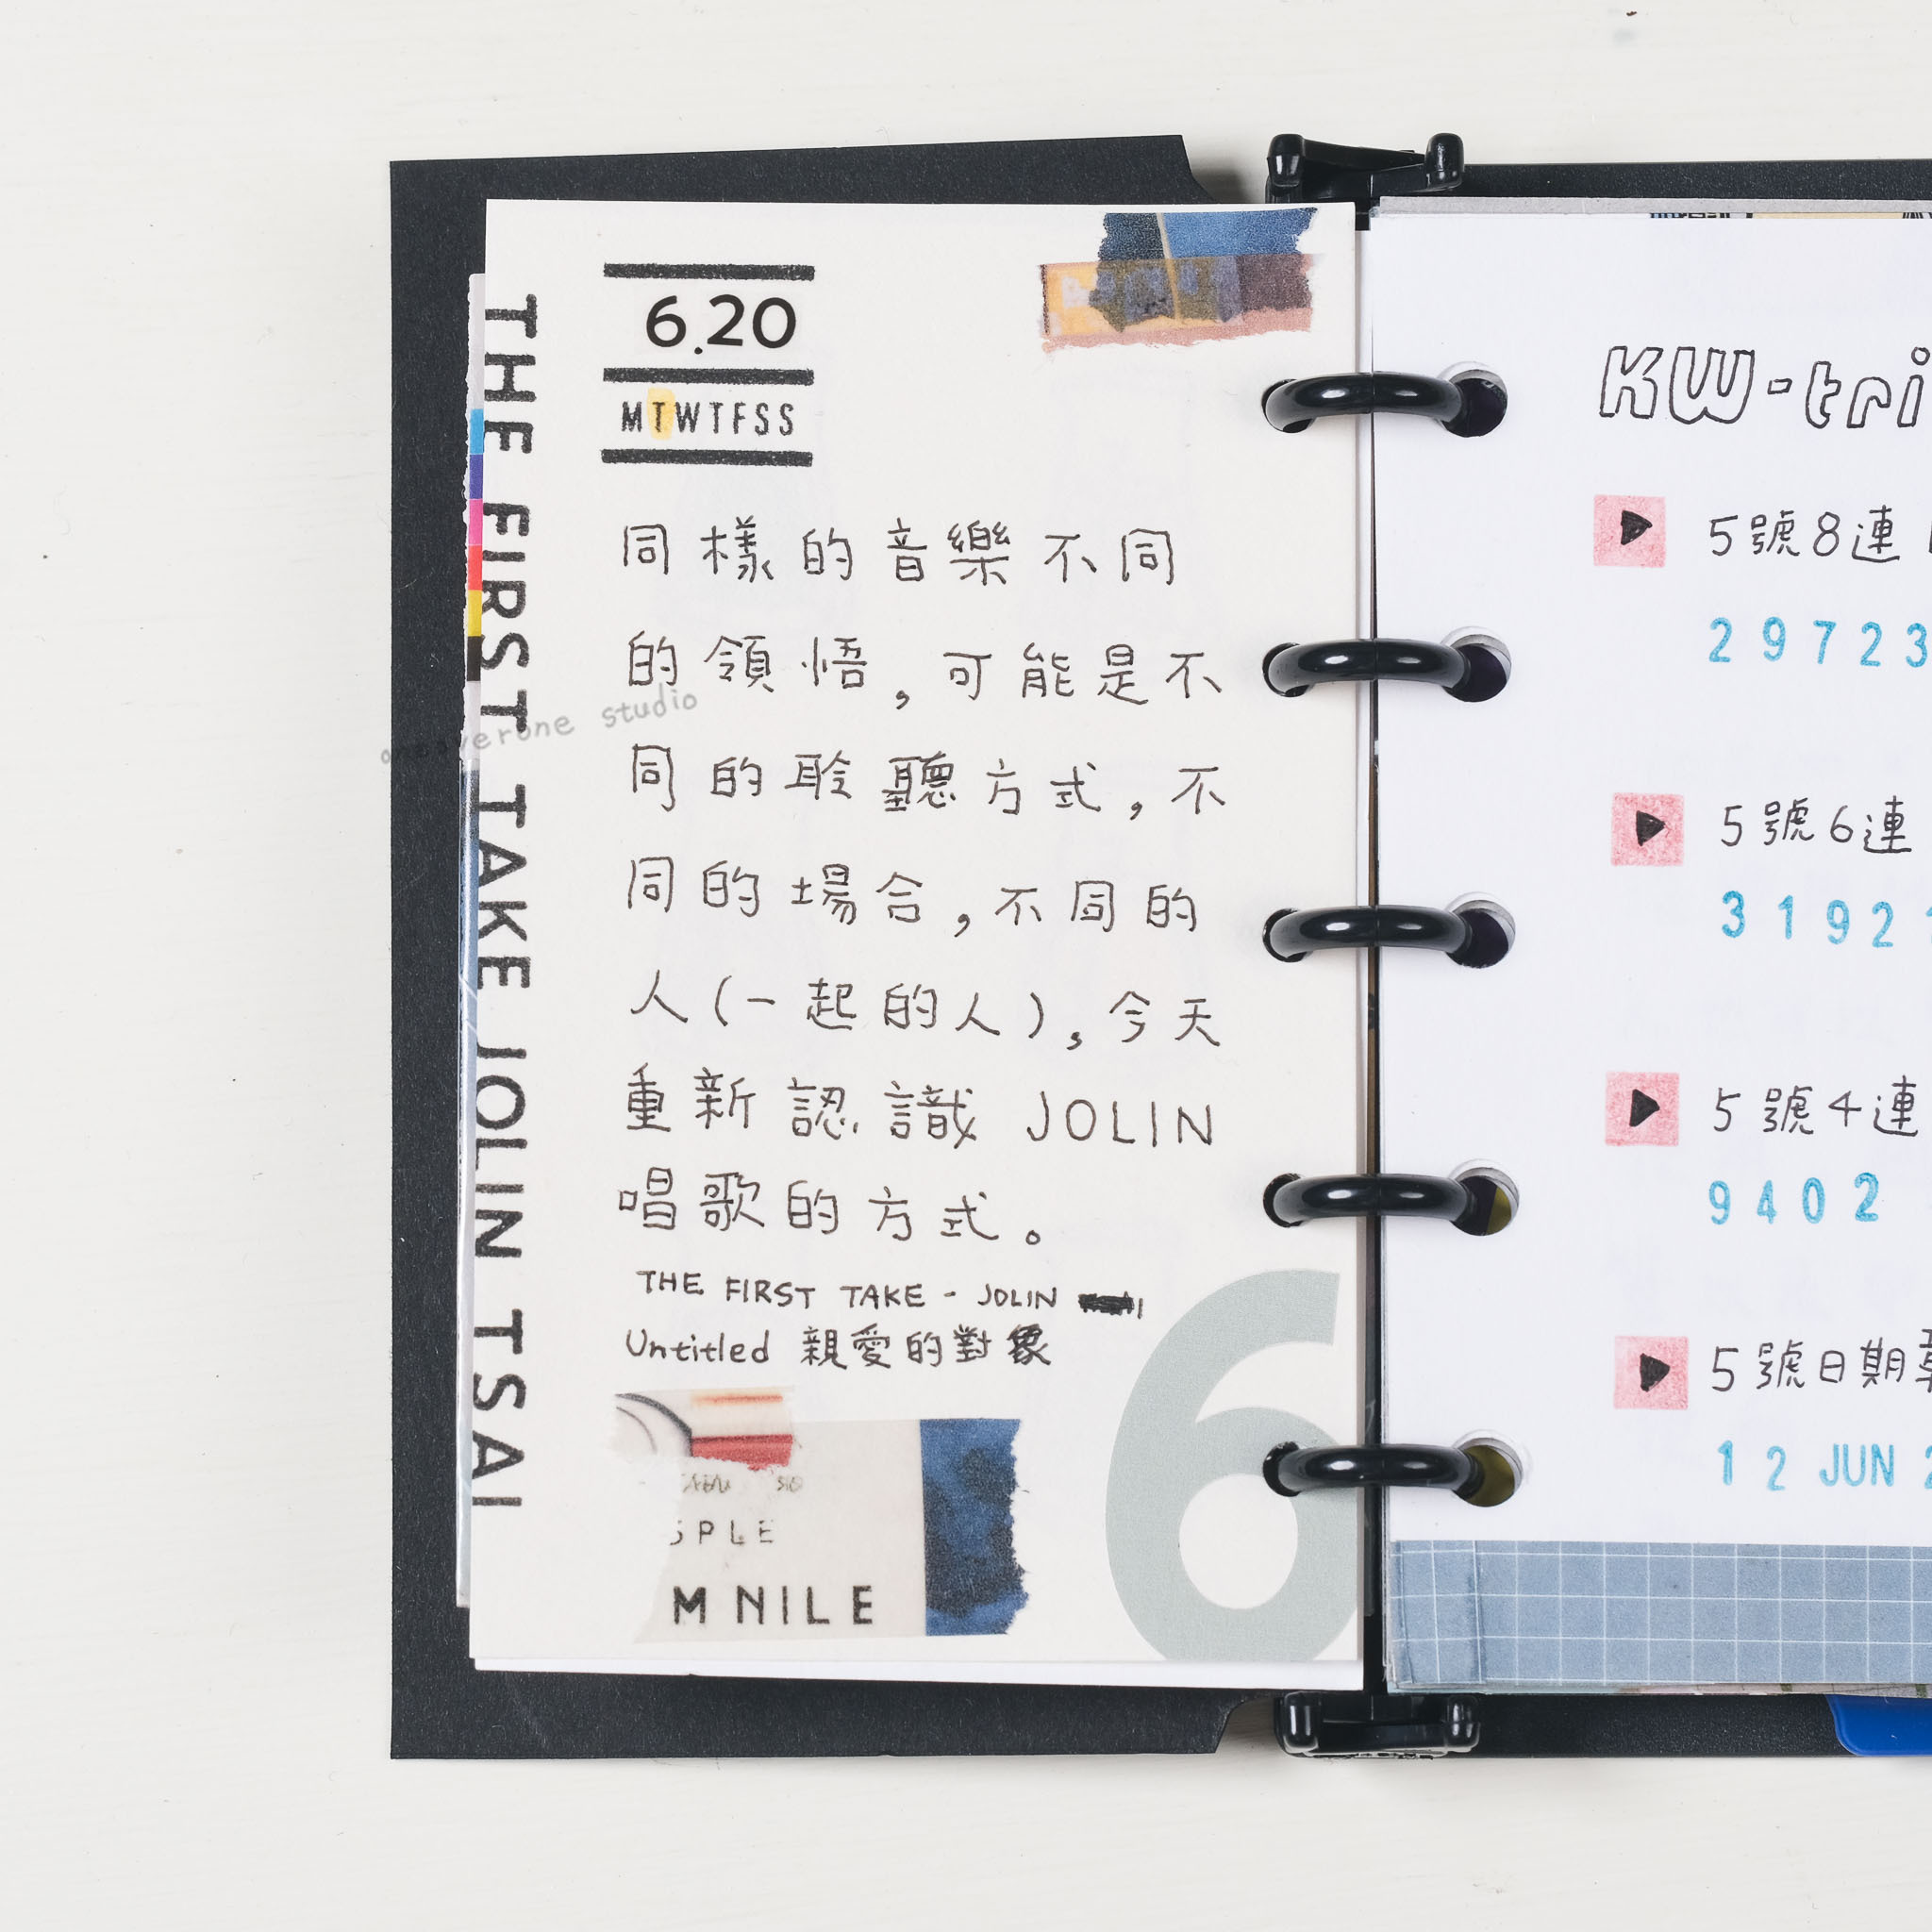 THE FIRST TAKE JOLIN TSAI
6.20
MTWTFSS
同樣的音樂不同
的領悟,可能是不
同的聆聽方式,不
同的場合,不同的
人(一起的人),今天
重新認識 JOLIN
唱歌的方式。
THE FIRST TAKE - JOLIN
Untitled 親愛的對象
SPLE
M NILE
6
oneoverone studio
KW-tri
5號8連
29723
5號6連
3192
5號4連
9402
5號日期章
12 JUN 2